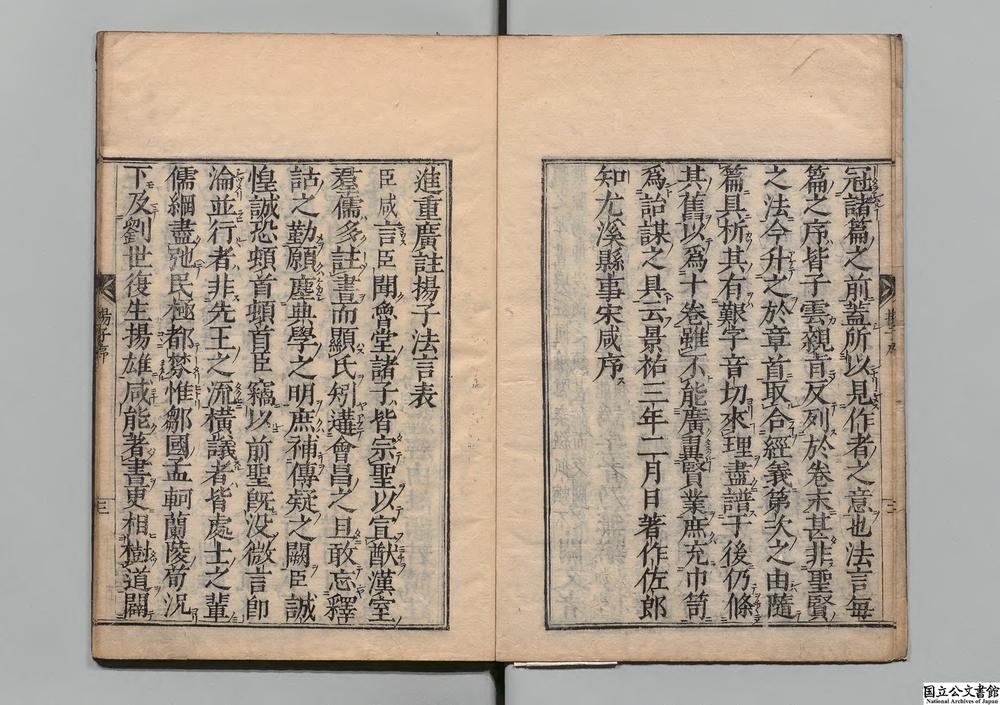 冠諸篇之前蓋所以見作者之意也法言每
篇之序皆子雲親旨反列於卷末甚非聖賢
之法今升之於章首取合經義第次之由隨
篇具析其有艱字音切來理盡譜于後仍條
其舊以爲十卷雖不能廣異賢業庶充巾笥
爲詒謀之具云景祐三年二月日著作佐郎
知尤溪縣事宋咸序
進重廣註揚子法言表
臣咸言臣聞會堂諸子皆宗聖以宣猷漢室
羣儒多註書而顯氏矧遘會昌之旦敢忘釋
詁之勤願塵典學之明庶補傳疑之闕臣誠
惶誠恐頓首頓首臣竊以前聖旣没微言卽
淪並行者非先王之流橫議者皆處士之輩
儒綱盡弛民極都棼惟鄒國孟軻蘭陵荀況
下及劉世復生揚雄咸能著書更相樹道闢
三
国立公文書館
National Archives of Japan